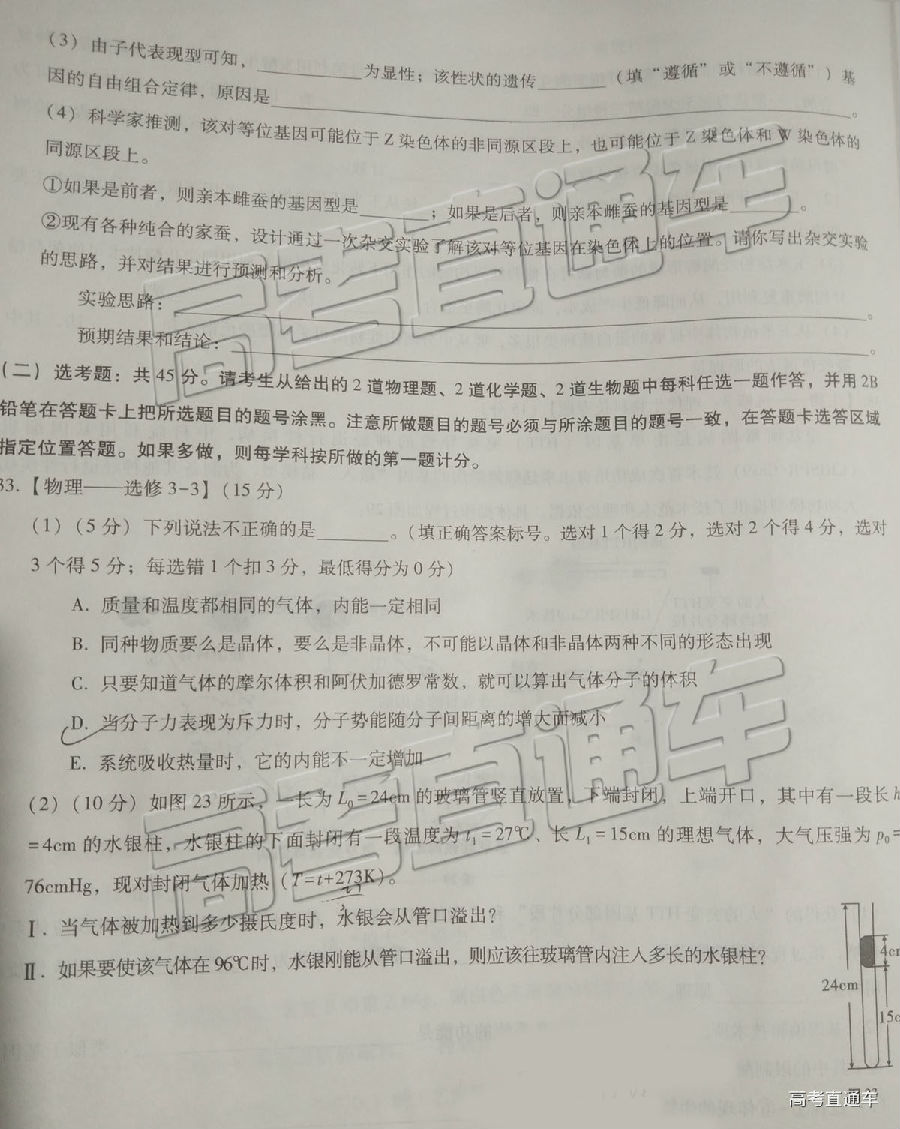 （3）由子代表现型可知，________为显性；该性状的遗传______（填“遵循”或“不遵循”）基
因的自由组合定律，原因是________。
（4）科学家推测，该对等位基因可能位于Z染色体的非同源区段上，也可能位于Z染色体和W染色体的
同源区段上。
①如果是前者，则亲本雌蚕的基因型是______；如果是后者，则亲本雌蚕的基因型是______。
②现有各种纯合的家蚕，设计通过一次杂交实验了解该对等位基因在染色体上的位置。请你写出杂交实验
的思路，并对结果进行预测和分析。
实验思路：________
预期结果和结论：________。
（二）选考题：共45分。请考生从给出的2道物理题、2道化学题、2道生物题中每科任选一题作答，并用2B
铅笔在答题卡上把所选题目的题号涂黑。注意所做题目的题号必须与所涂题目的题号一致，在答题卡选答区域
指定位置答题。如果多做，则每学科按所做的第一题计分。
33.【物理——选修3-3】（15分）
（1）（5分）下列说法不正确的是______。（填正确答案标号。选对1个得2分，选对2个得4分，选对
3个得5分；每选错1个扣3分，最低得分为0分）
A. 质量和温度都相同的气体，内能一定相同
B. 同种物质要么是晶体，要么是非晶体，不可能以晶体和非晶体两种不同的形态出现
C. 只要知道气体的摩尔体积和阿伏加德罗常数，就可以算出气体分子的体积
D. 当分子力表现为斥力时，分子势能随分子间距离的增大而减小
E. 系统吸收热量时，它的内能不一定增加
（2）（10分）如图23所示，一长为L₀=24cm的玻璃管竖直放置，下端封闭，上端开口，其中有一段长h
=4cm的水银柱，水银柱的下面封闭有一段温度为t₁=27℃、长L₁=15cm的理想气体，大气压强为p₀=
76cmHg，现对封闭气体加热（T=t+273K）。
Ⅰ. 当气体被加热到多少摄氏度时，水银会从管口溢出？
Ⅱ. 如果要使该气体在96℃时，水银刚能从管口溢出，则应该往玻璃管内注入多长的水银柱？
4cm
24cm
15c
高考直通车
高考直通车
高考直通车